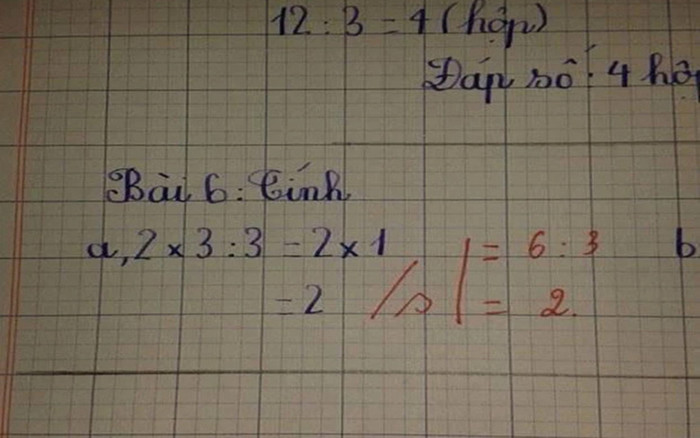 12 : 3 = 4 (hộp)
Đáp số : 4 hộp
Bài 6 : Tính
a, 2 x 3 : 3 = 2 x 1 = 6 : 3
= 2 /s = 2.
b